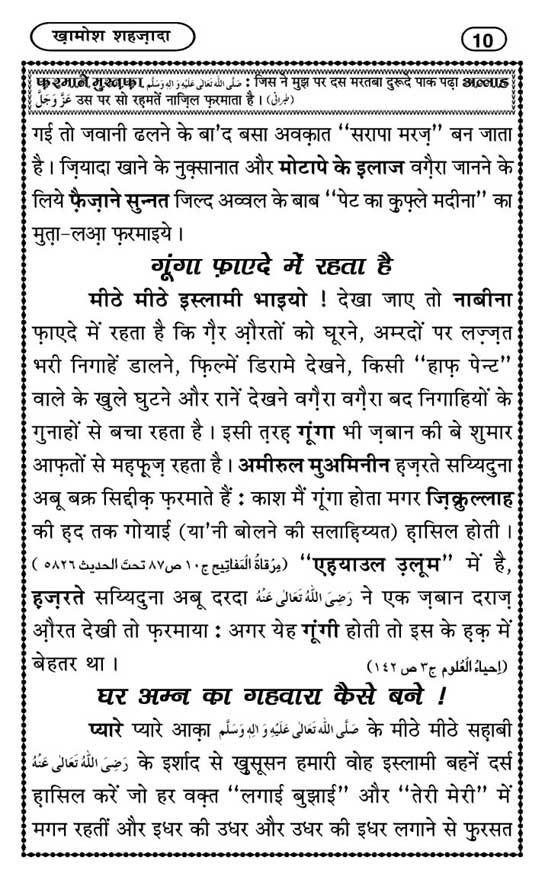 ख़ामोश शहज़ादा
10
फ़रमाने मुस्तफ़ा صَلَّى اللهُ تَعَالٰى عَلَيْهِ وَاٰلِهٖ وَسَلَّم : जिस ने मुझ पर दस मरतबा दुरूदे पाक पढ़ा अल्लाह
عَزَّوَجَلَّ उस पर सो रहमतें नाज़िल फ़रमाता है । (طبرانی)
गई तो जवानी ढलने के बा'द बसा अवक़ात ''सरापा मरज़'' बन जाता
है । ज़ियादा खाने के नुक़्सानात और मोटापे के इलाज वग़ैरा जानने के
लिये फ़ैज़ाने सुन्नत जिल्द अव्वल के बाब ''पेट का कुफ़्ले मदीना'' का
मुता़-लआ़ फ़रमाइये ।
गूंगा फ़ाएदे में रहता है
मीठे मीठे इस्लामी भाइयो ! देखा जाए तो नाबीना
फ़ाएदे में रहता है कि ग़ैर औ़रतों को घूरने, अम्रदों पर लज़्ज़त
भरी निगाहें डालने, फ़िल्में डिरामे देखने, किसी ''हाफ़ पेन्ट''
वाले के खुले घुटने और रानें देखने वग़ैरा वग़ैरा बद निगाहियों के
गुनाहों से बचा रहता है । इसी त़रह़ गूंगा भी ज़बान की बे शुमार
आफ़तों से मह़फ़ूज़ रहता है । अमीरुल मुअमिनीन ह़ज़रते सय्यिदुना
अबू बक्र सिद्दीक़ फ़रमाते हैं : काश मैं गूंगा होता मगर ज़िक्रुल्लाह
की ह़द तक गोयाई (या'नी बोलने की सलाह़िय्यत) ह़ासिल होती ।
(مِرقاۃُ الْمَفاتیح ج۱۰ ص۸۷ تحتَ الحدیث ۵۸۲۶) ''एह़याउल उ़लूम'' में है,
ह़ज़रते सय्यिदुना अबू दरदा رَضِیَ اللهُ تَعَالٰی عَنْهُ ने एक ज़बान दराज़
औ़रत देखी तो फ़रमाया : अगर येह गूंगी होती तो इस के ह़क़ में
बेहतर था । (اِحیاءُ الْعُلوم ج۳ ص ۱۴۲)
घर अम्न का गहवारा कैसे बने !
प्यारे प्यारे आक़ा صَلَّى اللهُ تَعَالٰى عَلَيْهِ وَاٰلِهٖ وَسَلَّم के मीठे मीठे सह़ाबी
رَضِیَ اللهُ تَعَالٰی عَنْهُ के इर्शाद से खुसूसन हमारी वोह इस्लामी बहनें दर्स
ह़ासिल करें जो हर वक़्त ''लगाई बुझाई'' और ''तेरी मेरी'' में
मगन रहतीं और इधर की उधर और उधर की इधर लगाने से फ़ुरसत